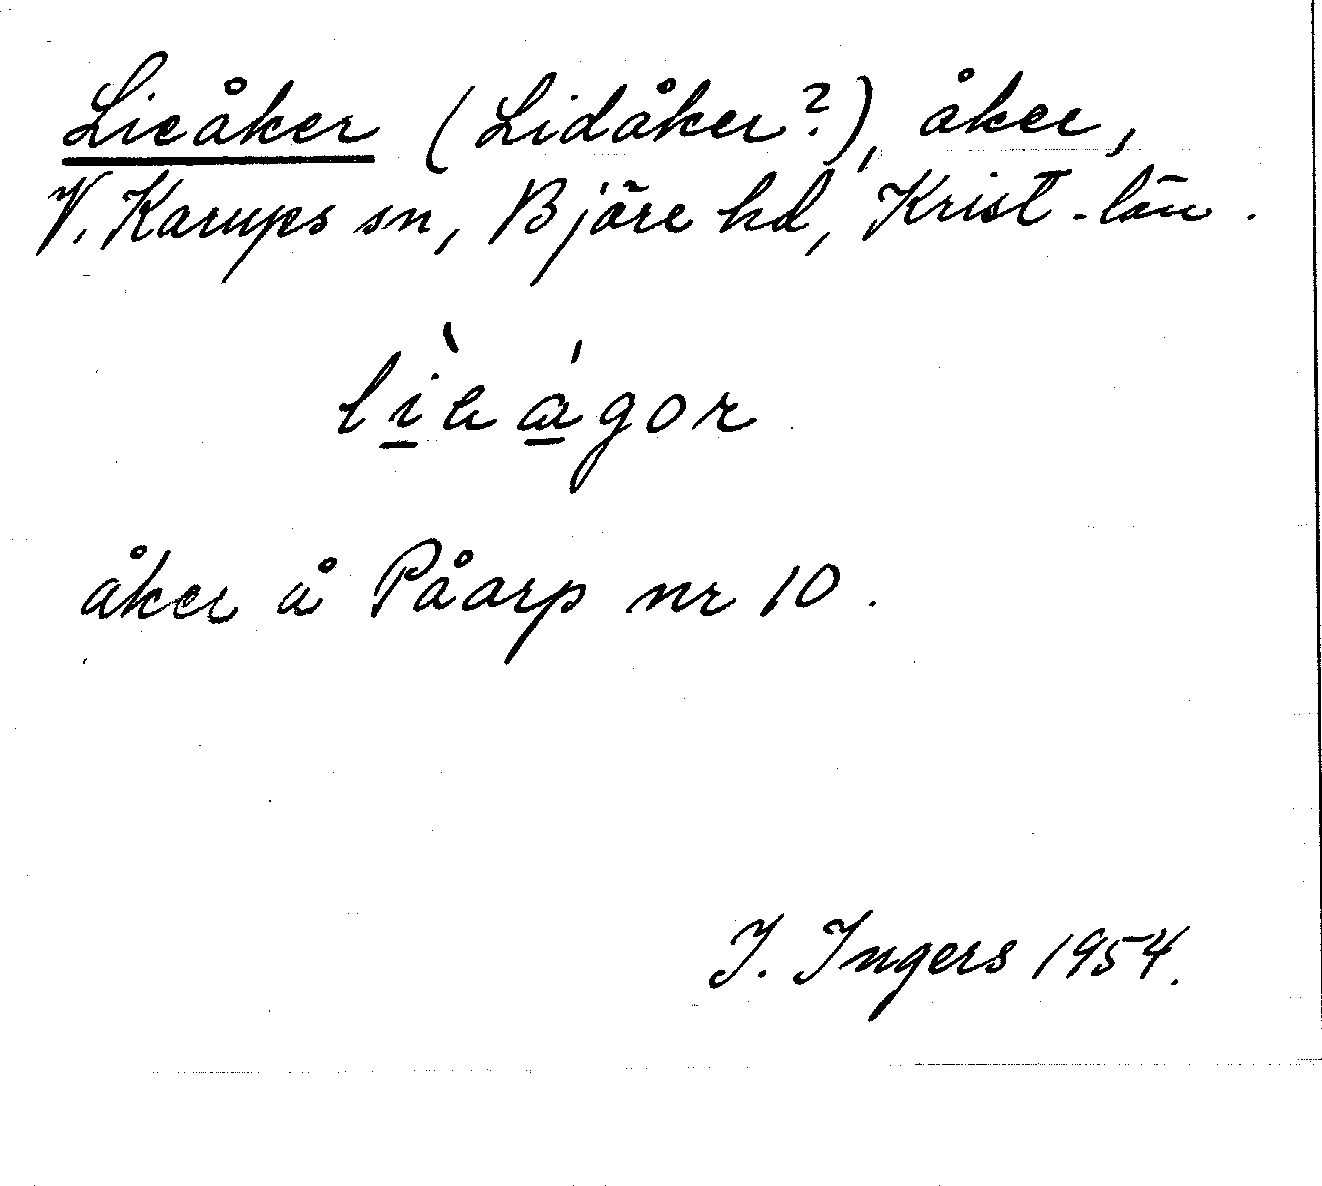 Lieåker (Lidåker?), åker,
V. Karups sn, Bjäre hd, Krist-län.
lìeágor
åker å Påarp nr 10.
I. Ingers 1954.